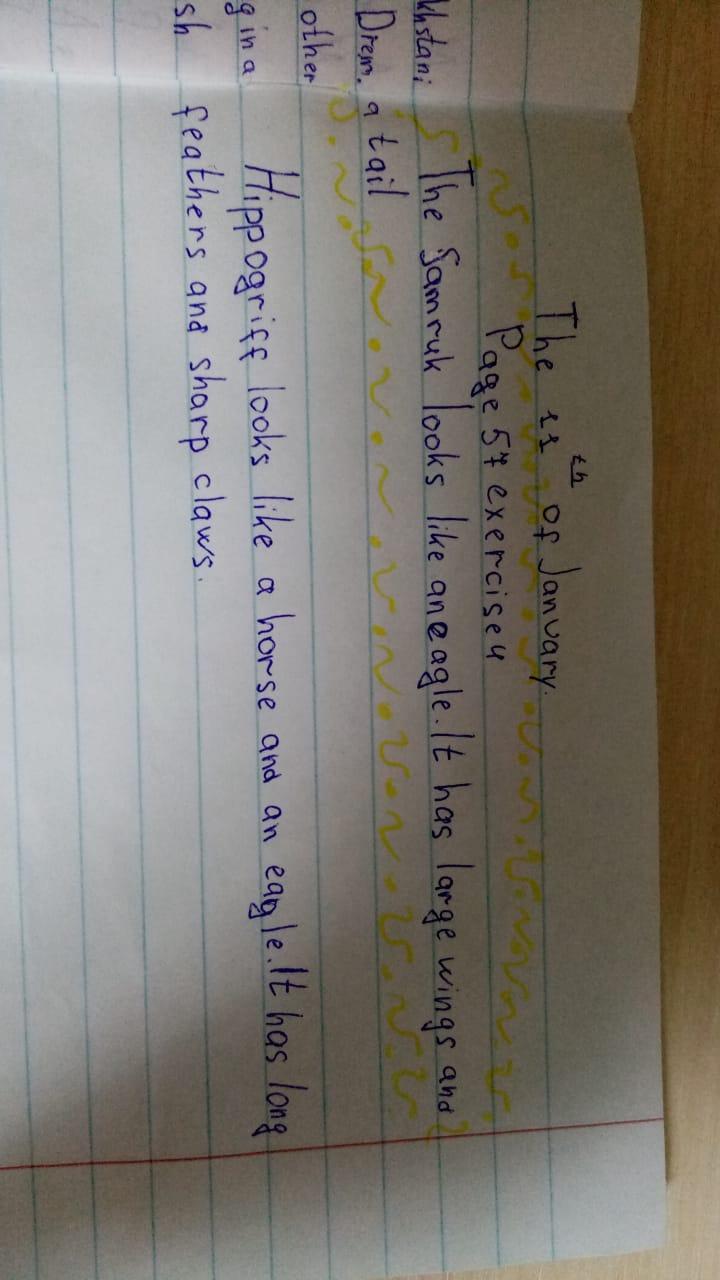 khstani
Drem.
other
g in a
sh
The 11th of January.
Page 57 exercise 4
The Samruk looks like an eagle. It has large wings and
a tail
Hippogriff looks like a horse and an eagle. It has long
feathers and sharp claws.